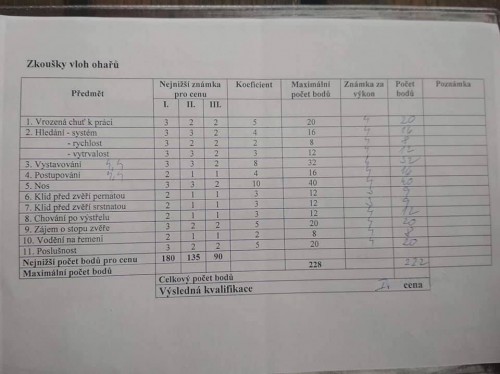 Zkoušky vloh ohařů
Předmět Nejnižší známka pro cenu Koeficient Maximální počet bodů Známka za výkon Počet bodů Poznámka
I. II. III.
1. Vrozená chuť k práci 3 2 2 5 20 4 20
2. Hledání - systém 3 3 2 4 16 4 16
- rychlost 3 2 2 2 8 4 8
- vytrvalost 3 3 2 3 12 4 12
3. Vystavování 3 3 2 8 32 4 32
4. Postupování 2 1 1 4 16 4 16
5. Nos 3 3 2 10 40 4 40
6. Klid před zvěří pernatou 2 1 1 3 12 3 9
7. Klid před zvěří srstnatou 2 1 1 3 12 3 9
8. Chování po výstřelu 2 1 1 3 12 4 12
9. Zájem o stopu zvěře 3 2 2 5 20 4 20
10. Vodění na řemeni 2 1 1 2 8 4 8
11. Poslušnost 3 2 2 5 20 4 20
Nejnižší počet bodů pro cenu 180 135 90
Maximální počet bodů 228 222
Celkový počet bodů
Výsledná kvalifikace I. cena